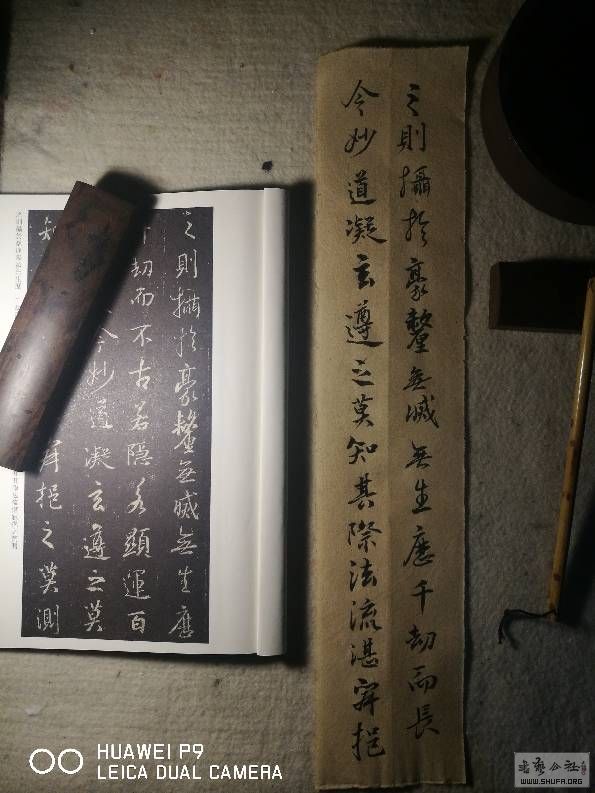 之則攝於豪釐無滅無生歷千劫而長
今妙道凝玄遵之莫知其際法流湛寂挹
之則攝於豪釐無滅無生歷
千劫而不古若隱若顯運百
今妙道凝玄遵之莫
知
寂挹之莫測
HUAWEI P9
LEICA DUAL CAMERA
書藝公社
WWW.SHUFA.ORG